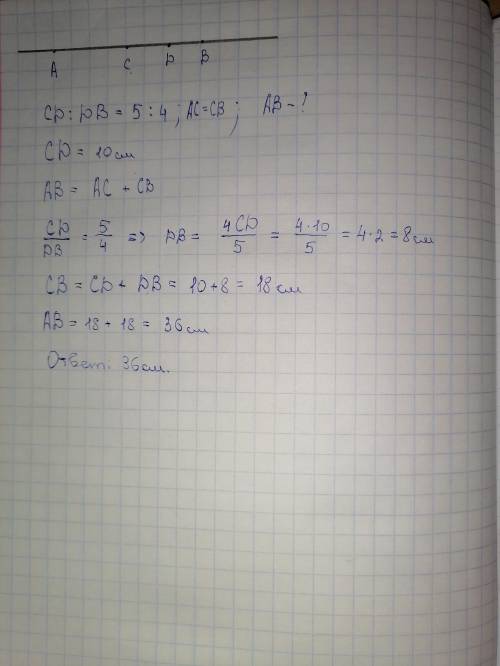 A C D B
CD : DB = 5 : 4 ; AC = CB ; AB - ?
CD = 10 см
AB = AC + CB
CD/DB = 5/4 => DB = 4CD/5 = 4·10/5 = 4·2 = 8 см
CB = CD + DB = 10 + 8 = 18 см
AB = 18 + 18 = 36 см
Ответ: 36 см.